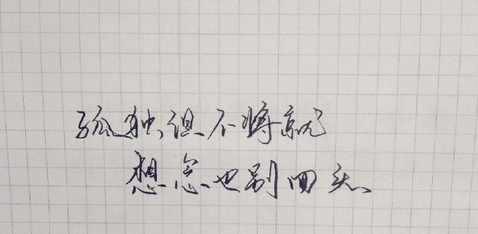 孤独但不将就
想念也别回头